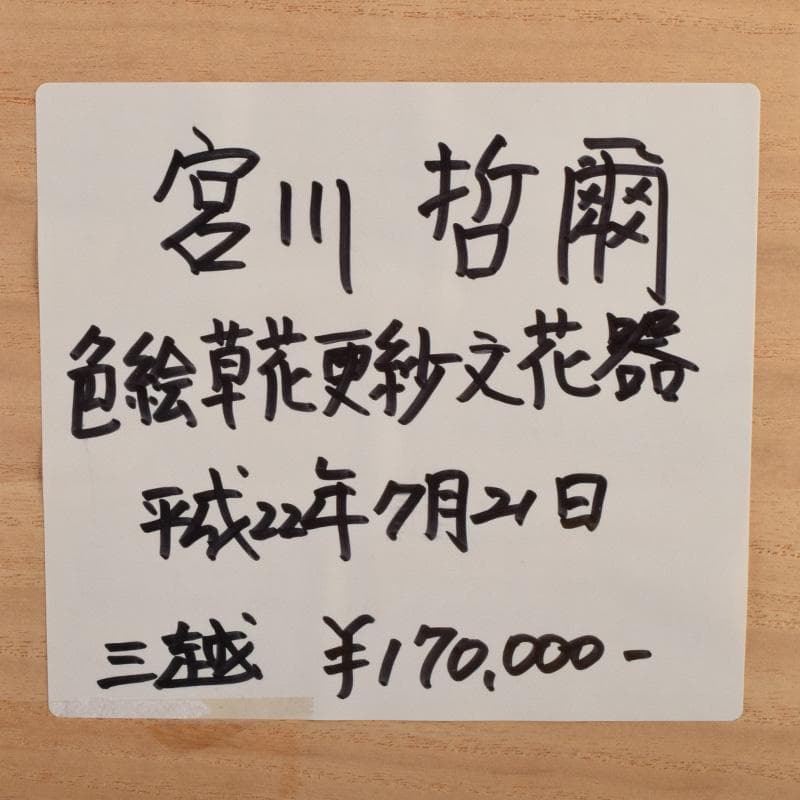 宮川 哲爾
色絵草花更紗文花器
平成22年7月21日
三越 ¥170,000-